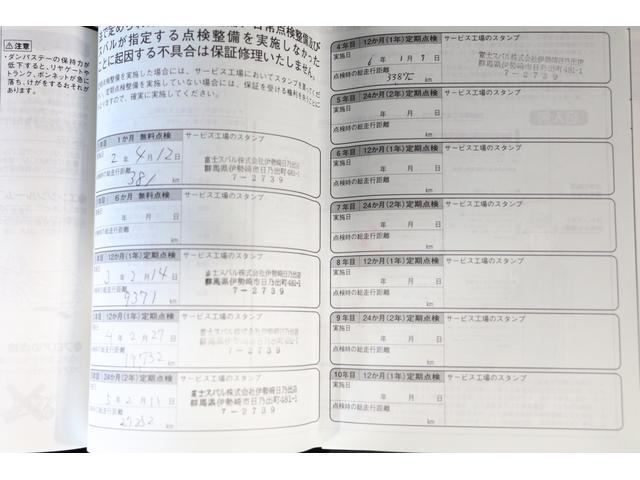 ⚠注意
・ダンパステーの保持力が
低下すると、リヤゲートや
トランク、ボンネットが急に
落ち、けがをするおそれが
あります。
日常点検整備及び
スバルが指定する点検整備を実施しなかった
ことに起因する不具合は保証修理いたしません。
点検整備を実施した場合には、サービス工場においてスタンプを
定期点検整備を実施していない場合には、保証を受ける権利を
ますので、確実に実施してください。
1か月 無料点検 サービス工場のスタンプ
2年 4月 12日
総走行距離
381 km
富士スバル株式会社伊勢崎日乃出店
群馬県伊勢崎市日乃出町481-1
7-2739
6か月 無料点検 サービス工場のスタンプ
年 月 日
総走行距離
km
12か月(1年)定期点検 サービス工場のスタンプ
3年 2月 14日
総走行距離
9371 km
富士スバル株式会社伊勢崎日乃出店
群馬県伊勢崎市日乃出町481-1
7-2739
12か月(1年)定期点検 サービス工場のスタンプ
4年 2月 27日
走行距離
19732 km
富士スバル株式会社伊勢崎日乃出店
群馬県伊勢崎市日乃出町481-1
7-2739
24か月(2年)定期点検 サービス工場のスタンプ
5年 2月 11日
走行距離
27252 km
富士スバル株式会社伊勢崎日乃出店
群馬県伊勢崎市日乃出町481-1
7-2739
4年目 12か月(1年)定期点検 サービス工場のスタンプ
実施日
6年 1月 7日
点検時の総走行距離
km
富士スバル株式会社伊勢崎日乃出店
群馬県伊勢崎市日乃出町481-1
7-2739
5年目 24か月(2年)定期点検 サービス工場のスタンプ
実施日
年 月 日
点検時の総走行距離
km
6年目 12か月(1年)定期点検 サービス工場のスタンプ
実施日
年 月 日
点検時の総走行距離
km
7年目 24か月(2年)定期点検 サービス工場のスタンプ
実施日
年 月 日
点検時の総走行距離
km
8年目 12か月(1年)定期点検 サービス工場のスタンプ
実施日
年 月 日
点検時の総走行距離
km
9年目 24か月(2年)定期点検 サービス工場のスタンプ
実施日
年 月 日
点検時の総走行距離
km
10年目 12か月(1年)定期点検 サービス工場のスタンプ
実施日
年 月 日
点検時の総走行距離
km